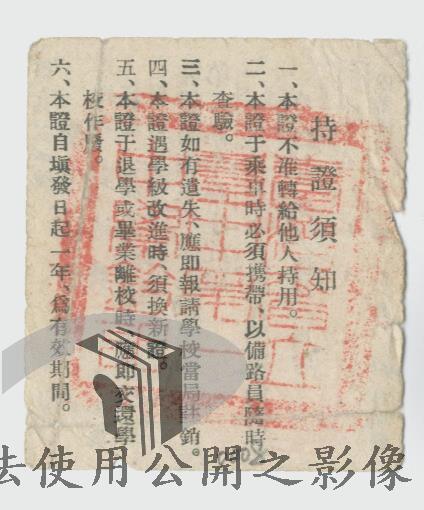 持證須知
一、本證不準轉給他人持用。
二、本證于乘車時必須攜帶、以備路員隨時
查驗。
三、本證如有遺失、應即報請學校當局註銷。
四、本證遇學級改進時、須換新證。
五、本證于退學或畢業離校時、應即交還學
校作廢。
六、本證自塡發日起一年、爲有效期間。
法使用公開之影像